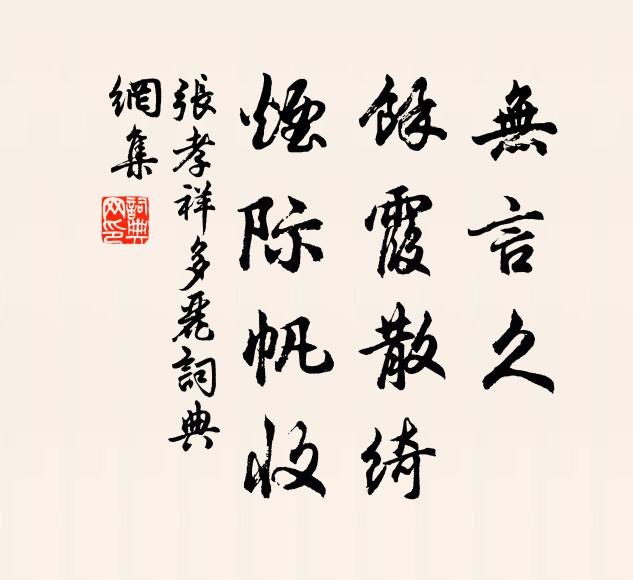 無言久
餘霞散綺
煙际帆收
張孝祥多麗詞典
網集
詞典
网印